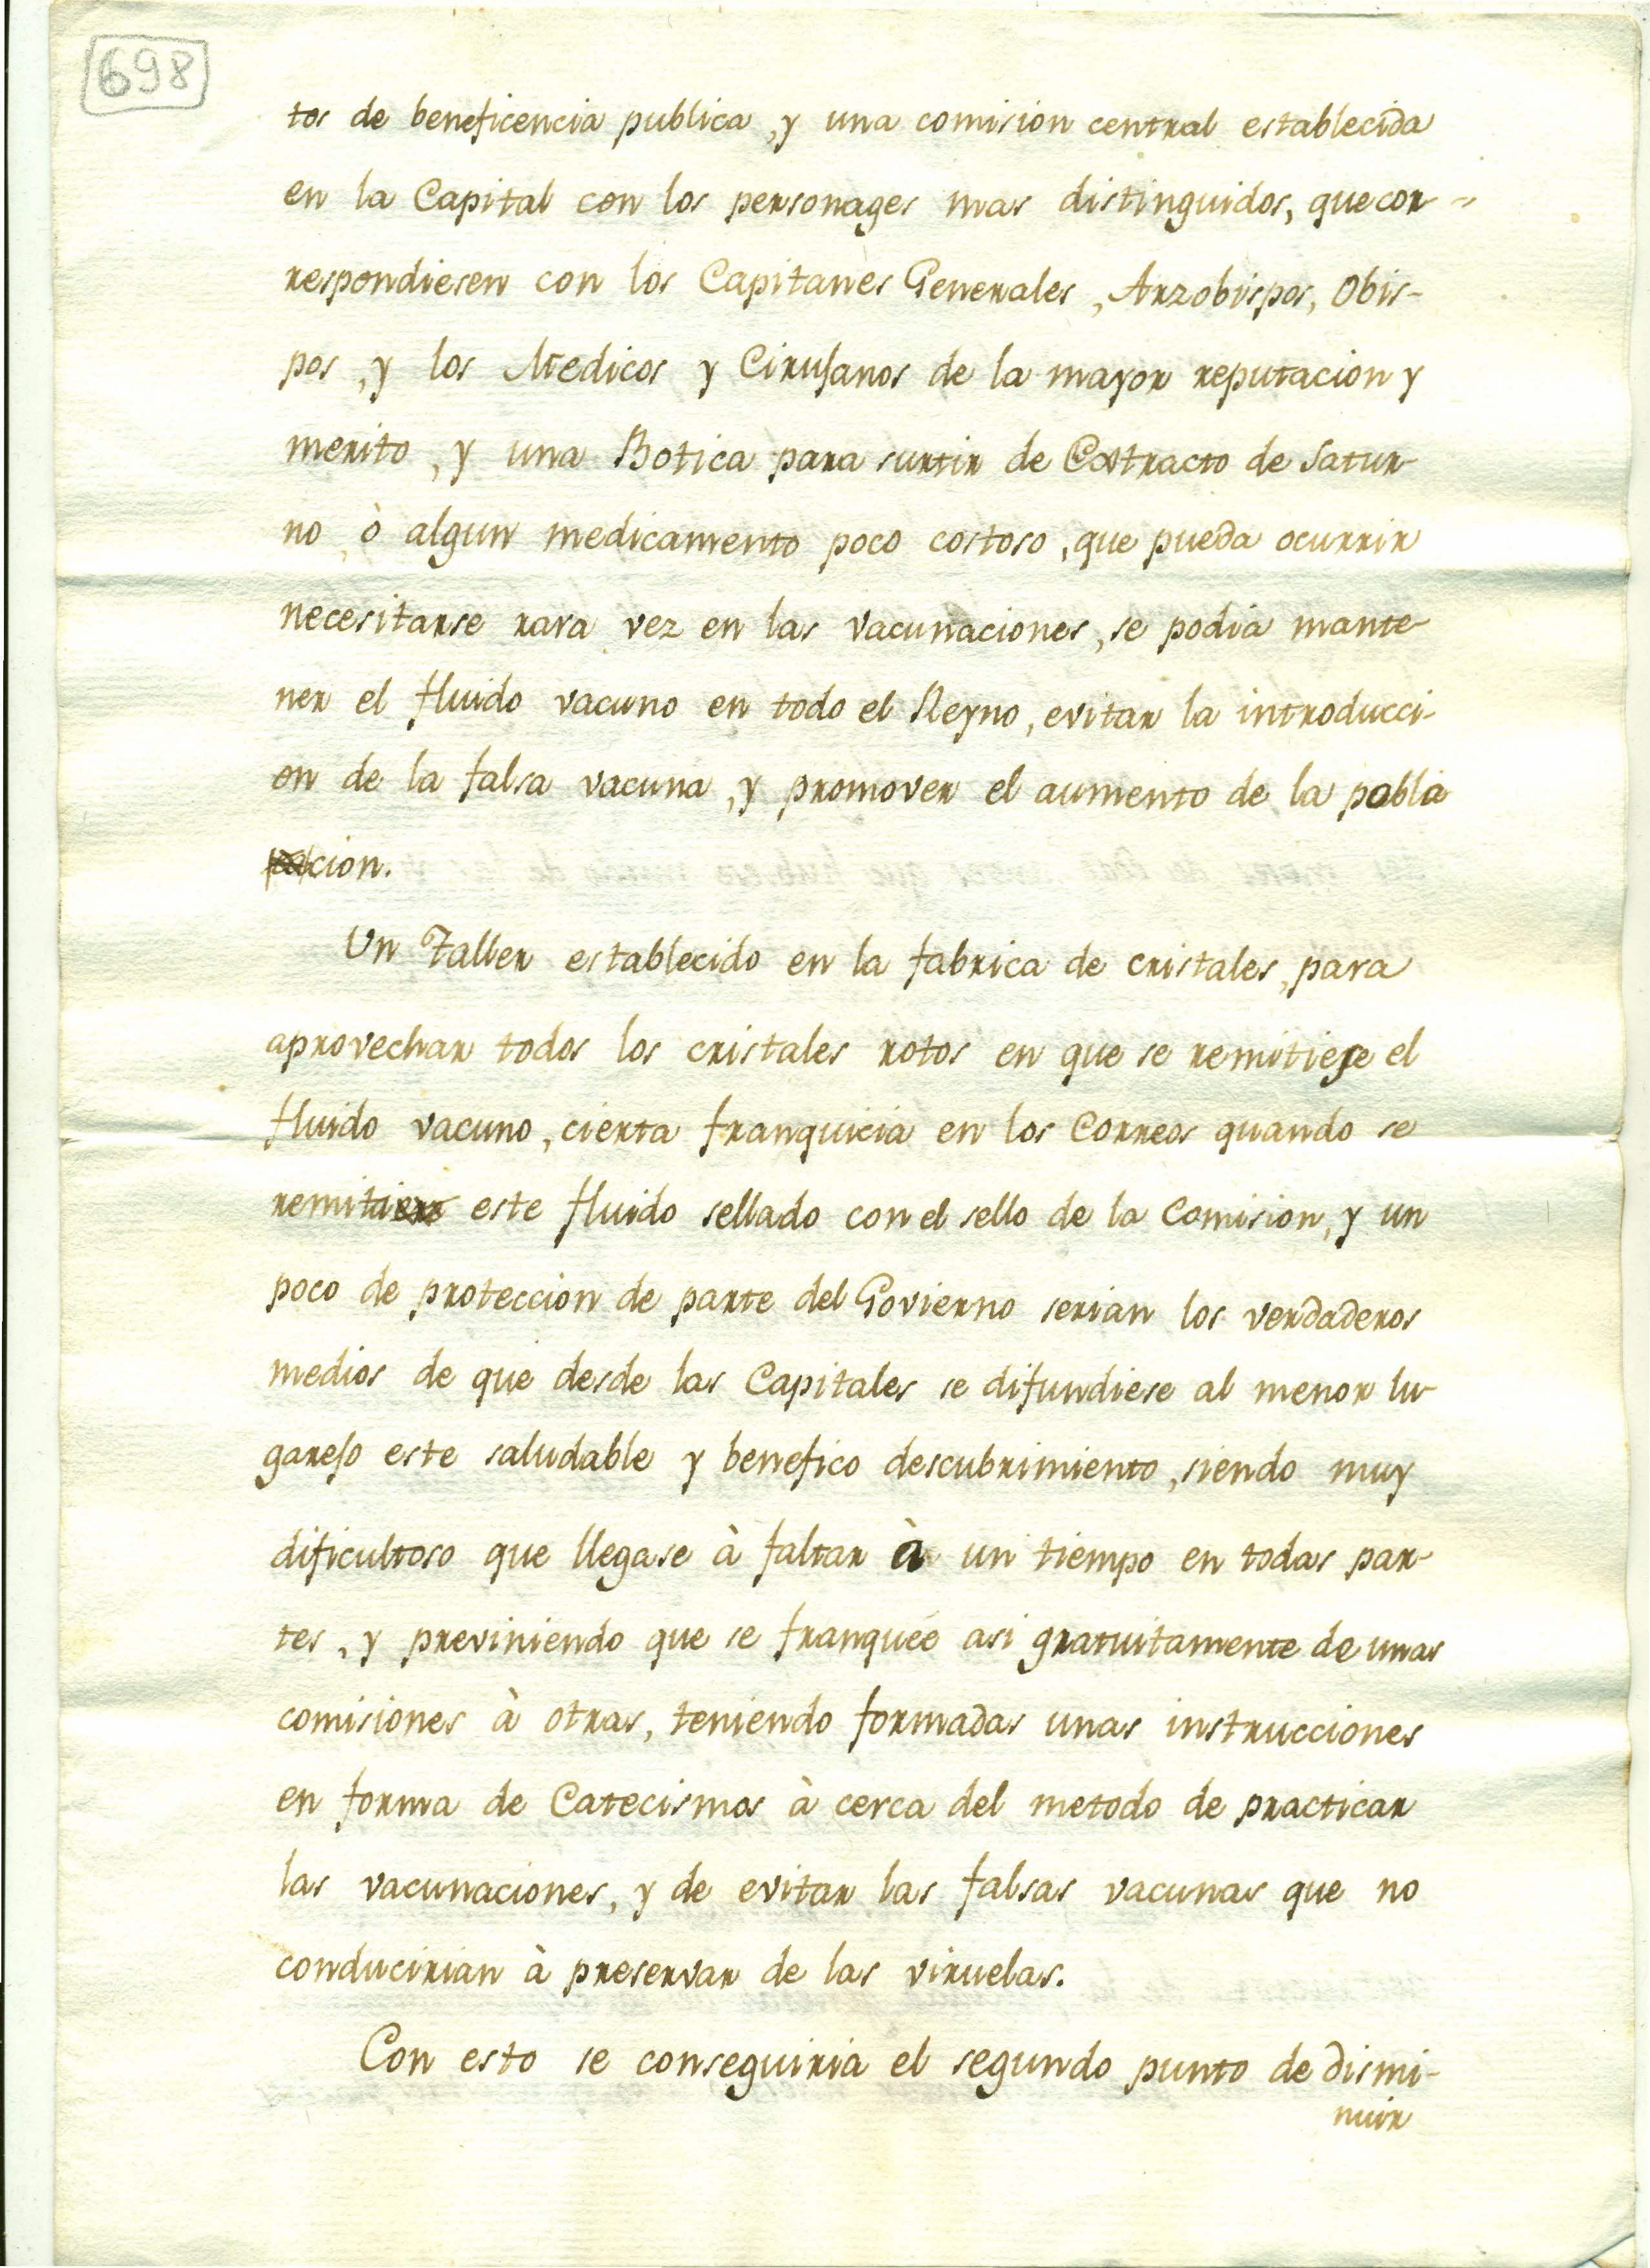 698
tos de beneficencia publica, y una comision central establecida
en la Capital con los personages mas distinguidos, que cor-
respondiesen con los Capitanes Generales, Arzobispos, Obis-
pos, y los Medicos y Cirujanos de la mayor reputacion y
merito, y una Botica para surtir de Extracto de Satur-
no, ò algun medicamento poco costoso, que pueda ocurrir
necesitarse rara vez en las vacunaciones, se podia mante-
ner el fluido vacuno en todo el Reyno, evitar la introducci-
on de la falsa vacuna, y promover el aumento de la pobla
cion.
Un Taller establecido en la fabrica de cristales, para
aprovechar todos los cristales rotos en que se remitiese el
fluido vacuno, cierta franquicia en los Correos quando se
remita este fluido sellado con el sello de la Comision, y un
poco de proteccion de parte del Govierno serian los verdaderos
medios de que desde las Capitales se difundiese al menor lu-
garejo este saludable y benefico descubrimiento, siendo muy
dificultoso que llegase à faltar à un tiempo en todas par-
tes, y previniendo que se franqueé asi gratuitamente de unas
comisiones à otras, teniendo formadas unas instrucciones
en forma de Catecismos à cerca del metodo de practicar
las vacunaciones, y de evitar las falsas vacunas que no
conducirian à preservar de las viruelas.
Con esto se conseguiria el segundo punto de dismi-
nuir